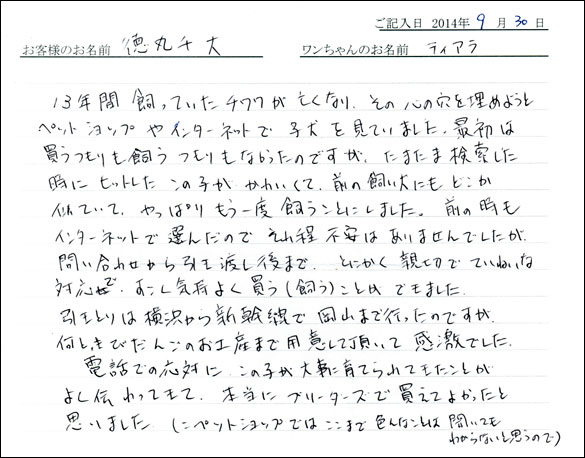 ご記入日 2014年 9月 30日
お客様のお名前 徳丸千大 ワンちゃんのお名前 ティアラ
13年間飼っていたチワワが亡くなり、その心の穴を埋めようと
ペットショップやインターネットで子犬を見ていました。最初は
買うつもりも飼うつもりもなかったのですが、たまたま検索した
時にヒットしたこの子がかわいくて、前の飼い犬にもどこか
似ていて、やっぱりもう一度飼うことにしました。前の時も
インターネットで選んだのでそれ程不安はありませんでしたが、
問い合わせから引き渡し後まで、とにかく親切でていねいな
対応で、すごく気持よく買う(飼う)ことができました。
引きとりは横浜から新幹線で岡山まで行ったのですが、
何ときびだんごのお土産まで用意して頂いて感激でした。
電話での応対に、この子が大事に育てられてきたことが
よし伝わってきて、本当にブリーダーズで買えてよかったと
思いました。(ペットショップではここまで色んなことは聞いても
わからないと思うので)